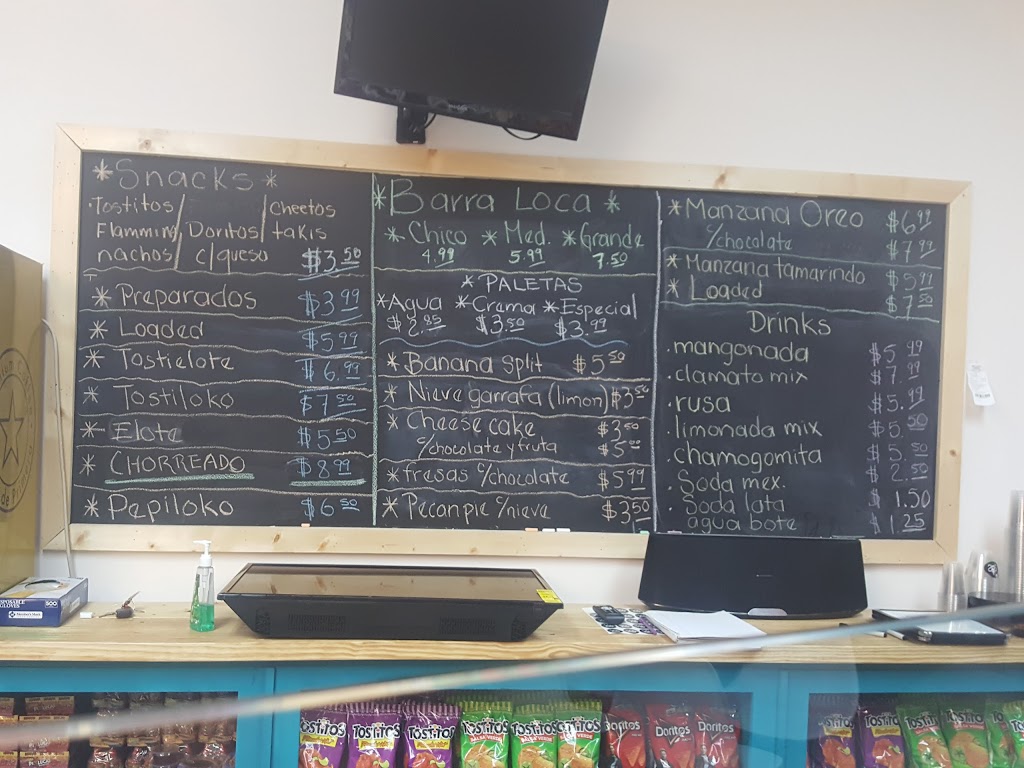 *Snacks*
Tostitos/ /Cheetos
Flammin/Doritos/takis
nachos/ c/queso $3.50
*Preparados $3.99
*Loaded $5.99
*Tostielote $6.99
*Tostiloko $7.50
*Elote $5.50
*CHORREADO $8.99
*Papiloko $6.50
*Barra Loca*
*Chico *Med. *Grande
4.99 5.99 7.50
*PALETAS
*Agua *Crema *Especial
$3.50 $3.99
*Banana Split $5.50
*Nieve garrafa (limon) $3.50
*Cheese cake $3.50
c/chocolate y fruta $5.00
*fresas c/chocolate $5.99
*Pecanpie c/nieve $3.50
*Manzana Oreo $6.99
c/chocolate $7.99
*Manzana tamarindo $5.99
*Loaded $7.50
Drinks
.mangonada $5.99
.clamato mix $7.99
.rusa $5.99
.limonada mix $5.50
.chamogomita $5.50
.Soda mex. $2.50
.Soda lata $1.50
agua bote $1.25
POSABLE
GLOVES
500
TOSTITOS
TOSTITOS
TOSTITOS
TOSTITOS
SALSA VERDE
TOSTITOS
SALSA VERDE
TOSTITOS
SALSA VERDE
Doritos
Doritos
Doritos
TOSTITOS
TOSTITOS
TOSTITOS